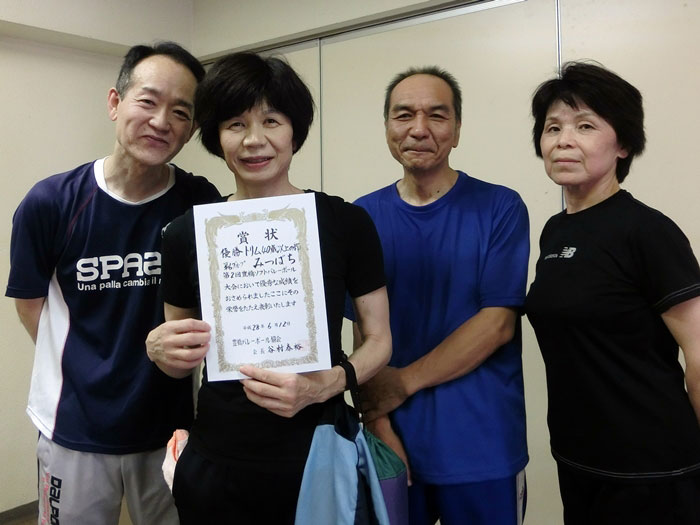 賞状
優勝 トリム(40歳以上の部)
みつばち
第2回豊橋ソフトバレーボール
大会において優秀な成績を
おさめられましたここにその
栄誉をたたえ表彰いたします
平成28年6月12日
豊橋バレーボール協会
会長 谷村春裕
SPAZ
Una palla cambia il
new balance